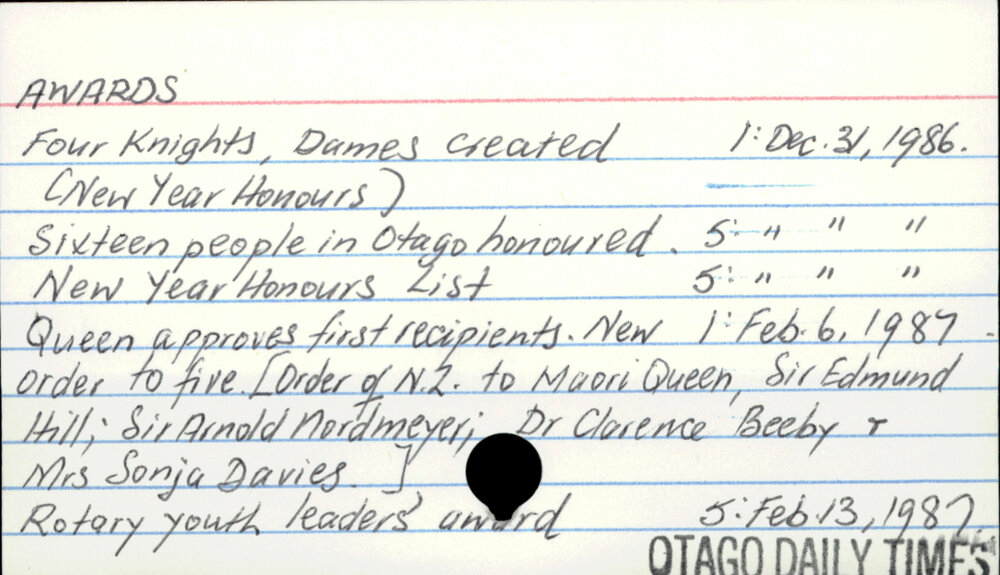 AWARDS
Four Knights, Dames created 1: Dec. 31, 1986.
(New Year Honours)
Sixteen people in Otago honoured. 5: " " "
New Year Honours List 5: " " "
Queen approves first recipients. New 1: Feb. 6, 1987.
order to five. [Order of N.Z. to Maori Queen, Sir Edmund
Hill; Sir Arnold Nordmeyer; Dr Clarence Beeby +
Mrs Sonja Davies.]
Rotary youth leaders' award 5: Feb. 13, 1987.
OTAGO DAILY TIMES